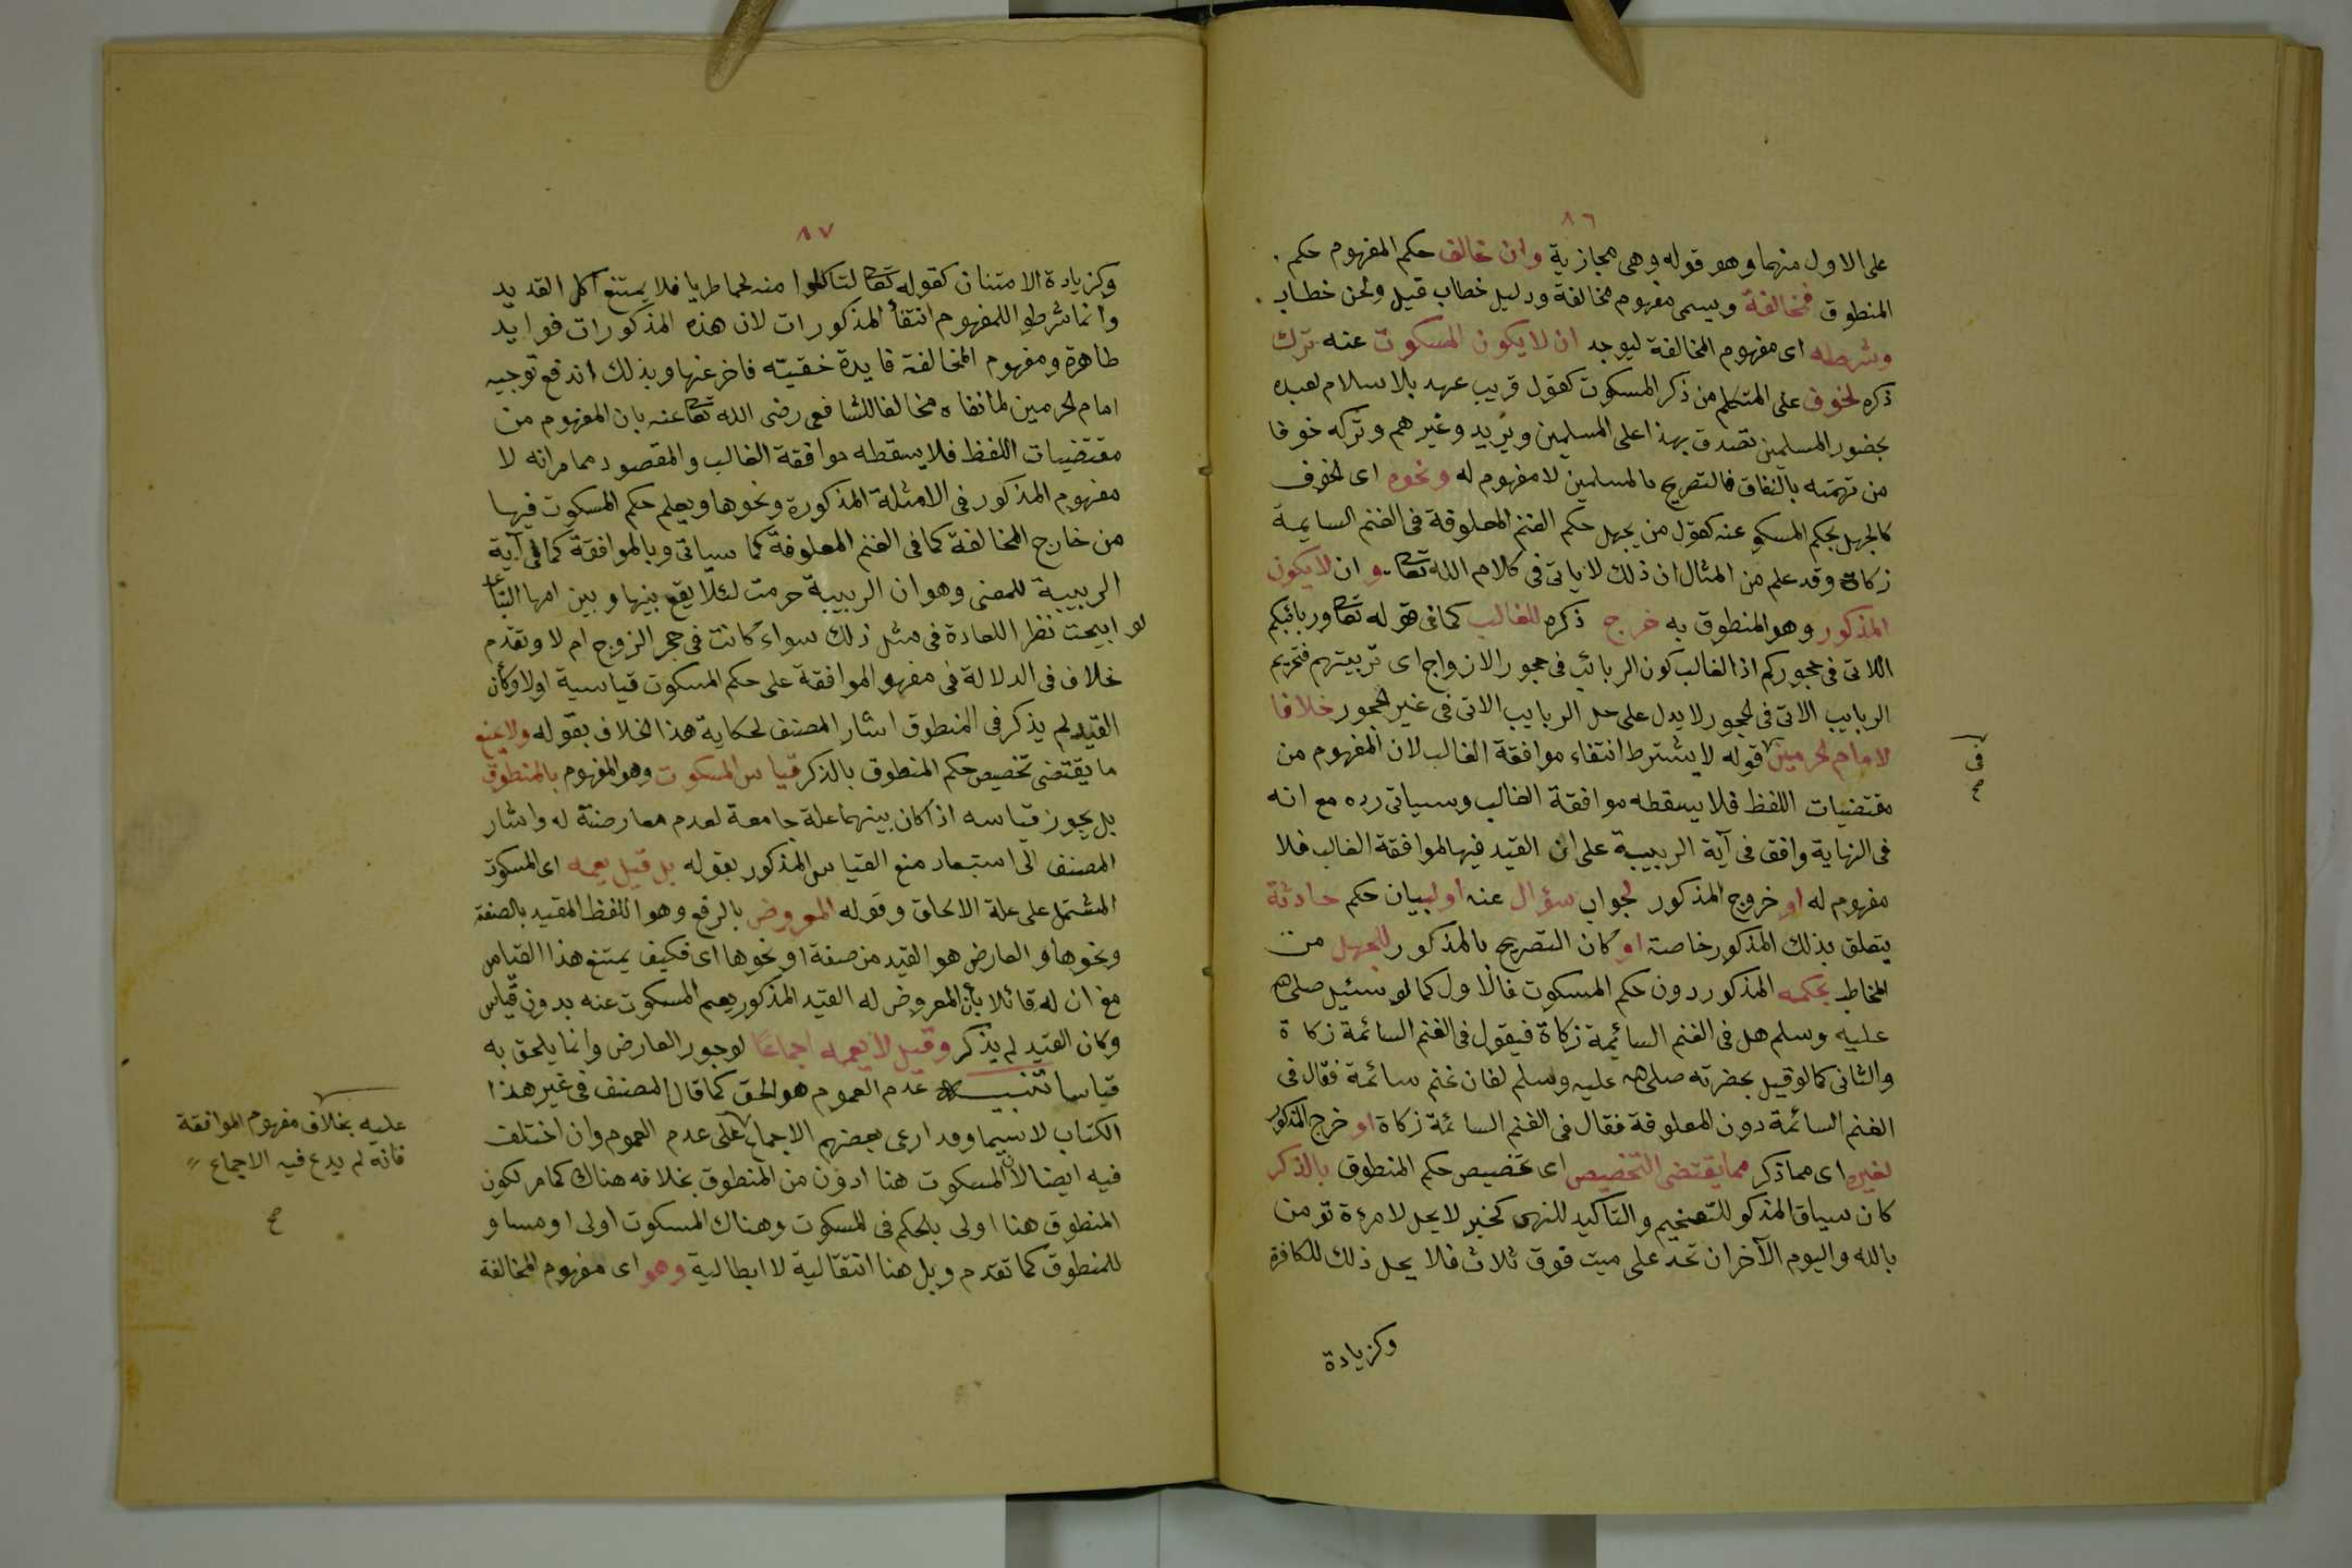 ٨٦
على الاول منهما وهو قوله وهى مجازية وان خالف حكم المفهوم حكم
المنطوق فمخالفة ويسمى مفهوم مخالفة ودليل خطاب قيل ولحن خطاب
وشرطه اى مفهوم المخالفة ليوجد ان لا يكون المسكوت عنه ترك
ذكره لخوف على المتكلم من ذكر المسكوت كقول قريب عهد بالاسلام لعبده
بحضور المسلمين تصدق بهذا على المسلمين ويريد وغيرهم وتركه خوفا
من تهمته بالنفاق فالتصريح بالمسلمين لا مفهوم له ونحوه اى الخوف
كالجهل بحكم المسكو عنه كقول من يجهل حكم الغنم المعلوفة فى الغنم السايمة
زكاة وقد علم من المثال ان ذلك لا ياتى فى كلام الله تعا وان لا يكون
المذكور وهو المنطوق به خرج ذكره للغالب كما فى قوله تعا وربائبكم
اللاتى فى حجوركم اذ الغالب كون الربائب فى حجور الازواج اى تربيتهم فتحريم
الربايب الاتى فى الحجور لا يدل على حل الربايب الاتى فى غير الحجور خلافا
لامام الحرمين قوله لا يشترط انتفاء موافقة الغالب لان المفهوم من
مقتضيات اللفظ فلا يسقطه موافقة الغالب وسياتى رده مع انه
فى النهاية وافق فى آية الربيبة على ان القيد فيها لموافقة الغالب فلا
مفهوم له او خروج المذكور لجواب سؤال عنه او لبيان حكم حادثة
يتعلق بذلك المذكور خاصة او كان التصريح بالمذكور للجهل من
المخاطب بحكمه المذكور دون حكم المسكوت فالاول كما لو سئيل صلى الله
عليه وسلم هل فى الغنم السائمة زكاة فيقول فى الغنم السائمة زكاة
والثانى كما لو قيل بحضرته صلى الله عليه وسلم لفان غنم سائمة فقال فى
الغنم السائمة دون المعلوفة فقال فى الغنم السائمة زكاة او خرج المذكور
لغيره اى مما ذكر مما يقتضى التخصيص اى تخصيص حكم المنطوق بالذكر
كان سياق المذكو للتفخيم والتاكيد للنهى كخبر لا يحل لامرءة تومن
بالله واليوم الآخر ان تحد على ميت فوق ثلاث فلا يحل ذلك للكافرة
وكزيادة
فى
صح
٨٧
وكزيادة الامتنان كقوله تعا لتاكلوا منه لحما طريا فلا يمتنع اكل القديد
وانما شرطوا للمفهوم انتفأ المذكورات لان هذه المذكورات فوايد
ظاهرة ومفهوم المخالفة فايدة خفيّته فاخر عنها وبذلك اندفع توجيه
امام الحرمين لما نفاه مخالفا للشافعى رضى الله تعا عنه بان المفهوم من
مقتضيات اللفظ فلا يسقطه موافقة الغالب والمقصود مما مر انه لا
مفهوم المذكور فى الامثلة المذكورة ونحوها ويعلم حكم المسكوت فيها
من خارج المخالفة كما فى الغنم المعلوفة كما سياتى وبالموافقة كما فى آية
الربيبة للمعنى وهو ان الربيبة حرمت لئلا يقع بينها وبين امها التباغ
لو ابيحت نظرا للعادة فى مثل ذلك سواء كانت فى حجر الزوج ام لا وتقدم
خلاف فى الدلالة فى مفهو الموافقة على حكم المسكوت قياسية اولا وكأن
القيد لم يذكر فى المنطوق اشار المصنف لحكاية هذا الخلاف بقوله ولا يمنع
ما يقتضى تخصيص حكم المنطوق بالذكر قياس المسكوت وهو المفهوم بالمنطوق
بل يجوز قياسه اذا كان بينهما علة جامعة لعدم معارضتة له واشار
المصنف الى استبعاد منع القياس المذكور بقوله بل قيل يعمه اى المسكوت
المشتمل على علة الالحاق وقوله المعروض بالرفع وهو اللفظ المقيد بالصفة
ونحوها والعارض هو القيد من صفة او نحوها اى فكيف يمتنع هذا القياس
مع ان له قائلا بأن المعروض له القيد المذكور يعم المسكوت عنه بدون قياس
وكان القيد لم يذكر وقيل لا يعمه اجماعا لوجود العارض وانما يلحق به
قياسا تنبيه عدم العموم هو الحق كما قال المصنف فى غير هذا
الكتاب لا سيما وقد ادعى بعضهم الاجماع على عدم العموم وان اختلف
فيه ايضا لان المسكوت هنا ادون من المنطوق بخلافه هناك كما مر لكون
المنطوق هنا اولى بالحكم فى المسكوت وهناك المسكوت اولى او مساو
للمنطوق كما تقدم وبل هنا انتقالية لا ابطالية وهو اى مفهوم المخالفة
عليه بخلاف مفهوم الموافقة
فانه لم يدع فيه الاجماع
صح